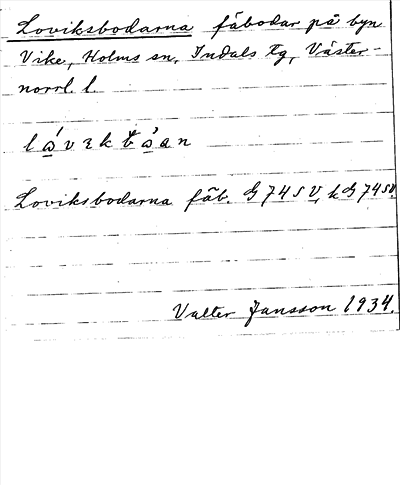 Loviksbodarna fäbodar på byn
Vike, Holms sn, Indals tg, Väster-
norrl. l.
Loviksbodarna fäb. G 745 V, k G 745 V.
Valter Jansson 1934.